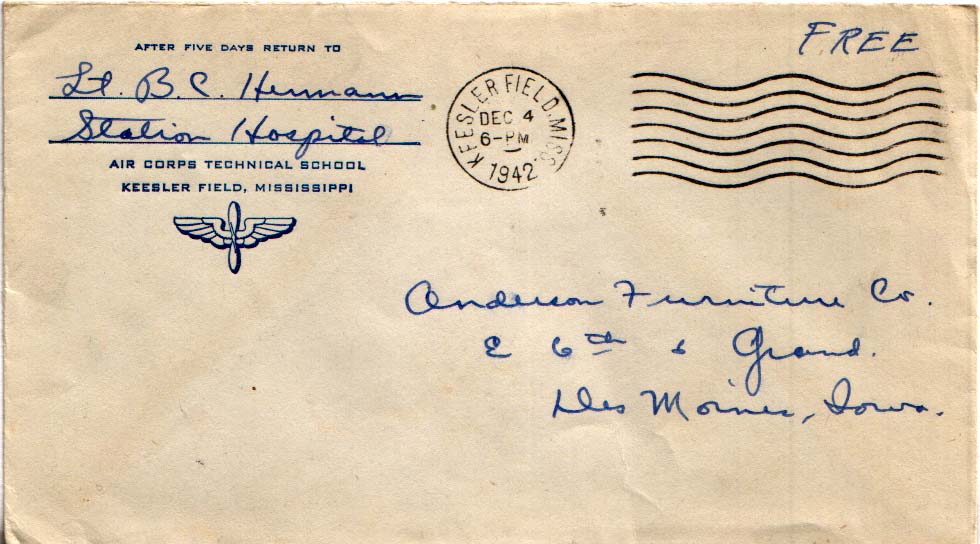 FREE
AFTER FIVE DAYS RETURN TO
Lt. B. C. Hermann
Station Hospital
AIR CORPS TECHNICAL SCHOOL
KEESLER FIELD, MISSISSIPPI
KEESLER FIELD, MISS.
DEC 4
6-PM
1942
Anderson Furniture Co.
E 6th & Grand.
Des Moines, Iowa.